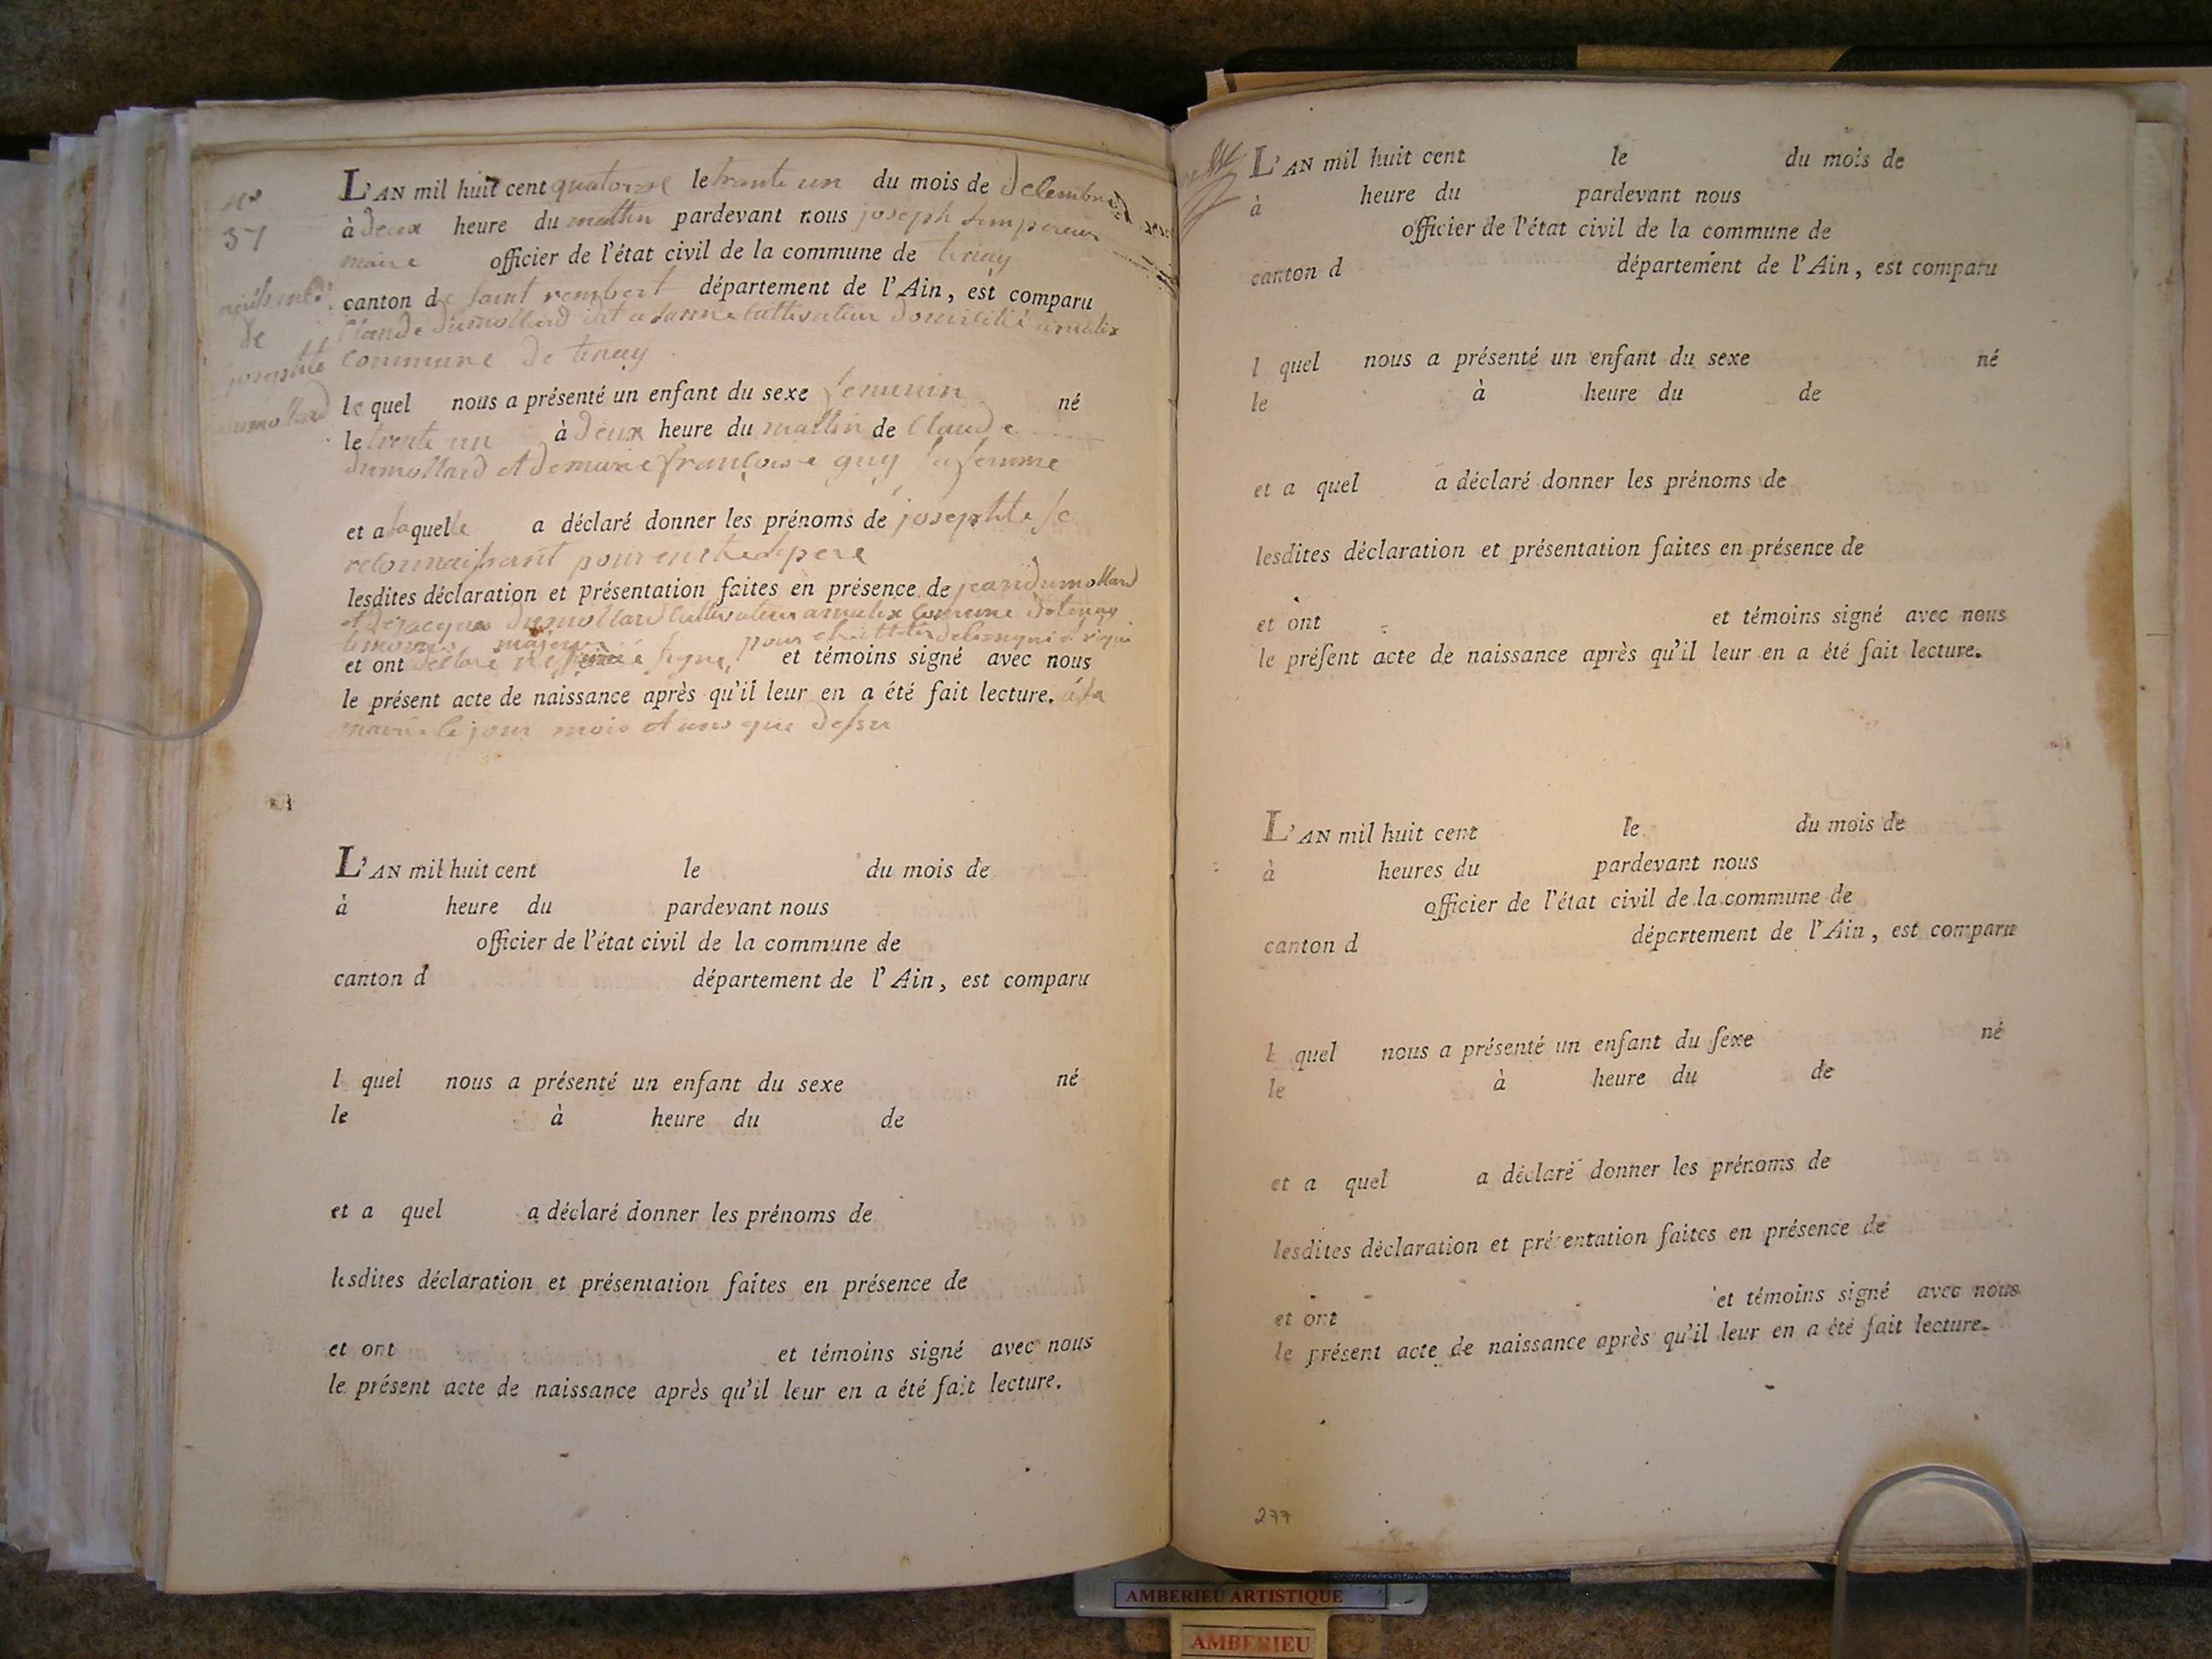 37
L'AN mil huit cent quatorze le trante un du mois de decembre
à deux heure du mattin pardevant nous joseph lempereur
maire officier de l'état civil de la commune de tenay
canton de saint rembert département de l'Ain, est comparu
Claude dumollard cultivateur domicilié
commune de tenay
de
dumollard
le quel nous a présenté un enfant du sexe femenin né
le trente un à deux heure du mattin de Claude
dumollard et de marie françoise guy sa femme
et a laquelle a déclaré donner les prénoms de josephte se
reconnaissant pour en etre pere
lesdites déclaration et présentation faites en présence de jean dumollard
et de jacques dumollard cultivateurs commune de tenay
temoins majeurs pour
et ont declaré signe et témoins signé avec nous
le présent acte de naissance après qu'il leur en a été fait lecture. a la
mairie le jour mois et ans que dessu
L'AN mil huit cent le du mois de
à heure du pardevant nous
officier de l'état civil de la commune de
canton d département de l'Ain, est comparu
l quel nous a présenté un enfant du sexe né
le à heure du de
et a quel a déclaré donner les prénoms de
lesdites déclaration et présentation faites en présence de
et ont et témoins signé avec nous
le présent acte de naissance après qu'il leur en a été fait lecture.
L'AN mil huit cent le du mois de
à heure du pardevant nous
officier de l'état civil de la commune de
canton d département de l'Ain, est comparu
l quel nous a présenté un enfant du sexe né
le à heure du de
et a quel a déclaré donner les prénoms de
lesdites déclaration et présentation faites en présence de
et ont et témoins signé avec nous
le préſent acte de naissance après qu'il leur en a été fait lecture.
L'AN mil huit cent le du mois de
à heures du pardevant nous
officier de l'état civil de la commune de
canton d département de l'Ain, est comparu
l quel nous a présenté un enfant du ſexe né
le à heure du de
et a quel a déclaré donner les prénoms de
lesdites déclaration et présentation faites en présence de
et ont et témoins signé avec nous
le présent acte de naissance après qu'il leur en a été fait lecture.
277
AMBERIEU ARTISTIQUE
AMBERIEU